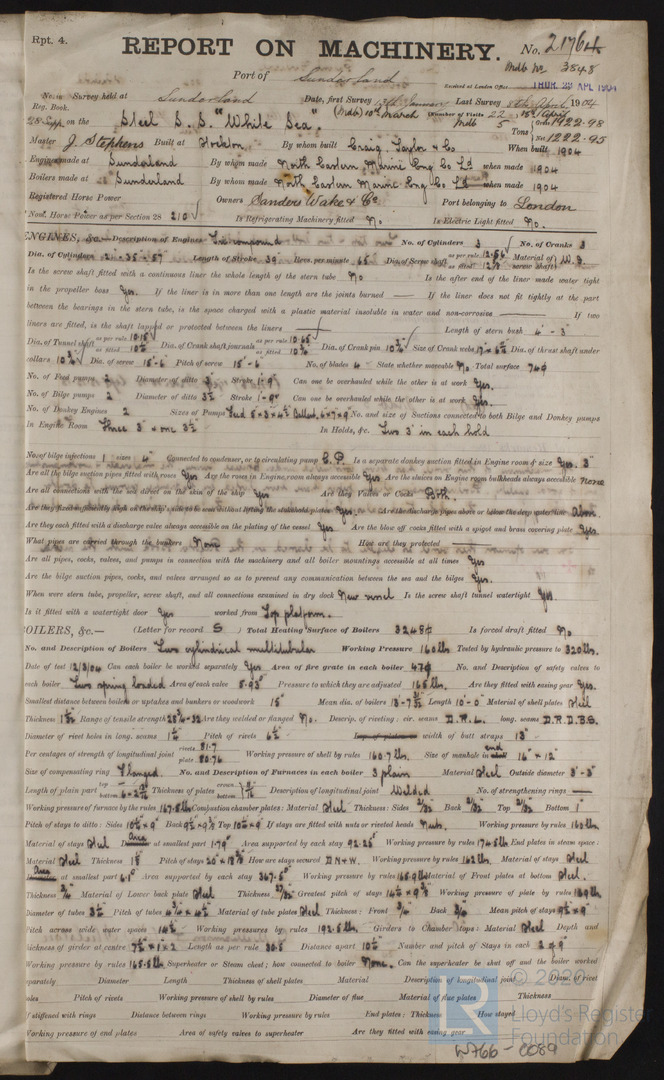 Rpt. 4.
REPORT ON MACHINERY.
No. 21764
Mdb No 3848
Port of Sunderland
Received at London Office THUR. APL 1904
No. in Survey held at Sunderland Date, first Survey 13th January Last Survey April 1904
Reg. Book. (Mdb) 10th March (Number of Visits 22
on the Steel S.S. "White Sea" Mdb 5 Tons Gross 1922.98
Net 1222.95
Master J. Stephens Built at Hylton By whom built Craig, Taylor & Co When built 1904
Engines made at Sunderland By whom made North Eastern Marine Eng Co Ld when made 1904
Boilers made at Sunderland By whom made North Eastern Marine Eng Co Ld when made 1904
Registered Horse Power Owners Sanders Wake & Co Port belonging to London
Nom. Horse Power as per Section 28 210 Is Refrigerating Machinery fitted No Is Electric Light fitted No.
ENGINES, &c.—Description of Engines Tri-compound No. of Cylinders 3 No. of Cranks 3
Dia. of Cylinders 21-35-57 Length of Stroke 39 Revs. per minute 65 Dia. of Screw shaft as per rule 12.56 as fitted 12 Material of screw shaft W.I.
Is the screw shaft fitted with a continuous liner the whole length of the stern tube No Is the after end of the liner made water tight
in the propeller boss Yes. If the liner is in more than one length are the joints burned — If the liner does not fit tightly at the part
between the bearings in the stern tube, is the space charged with a plastic material insoluble in water and non-corrosive — If two
liners are fitted, is the shaft lapped or protected between the liners — Length of stern bush 4'-3"
Dia. of Tunnel shaft as per rule 10.15 as fitted Dia. of Crank shaft journals as per rule 10.65 as fitted Dia. of Crank pin 10¾ Size of Crank webs Dia. of thrust shaft under
collars 10¾ Dia. of screw 15'-6 Pitch of screw 15'-6 No. of blades 4 State whether moveable No Total surface 74 ϕ
No. of Feed pumps 2 Diameter of ditto 3" Stroke 1'-9" Can one be overhauled while the other is at work Yes.
No. of Bilge pumps 2 Diameter of ditto 3½ Stroke 1-9" Can one be overhauled while the other is at work Yes.
No. of Donkey Engines 2 Sizes of Pumps Feed 5×3×4½ Ballast 6×7×9 No. and size of Suctions connected to both Bilge and Donkey pumps
In Engine Room Three 3" & one 3½" In Holds, &c. Two 3" in each hold
No. of bilge injections 1 sizes 4" Connected to condenser, or to circulating pump C.P. Is a separate donkey suction fitted in Engine room & size Yes. 3"
Are all the bilge suction pipes fitted with roses Yes Are the roses in Engine room always accessible Yes Are the sluices on Engine room bulkheads always accessible None
Are all connections with the sea direct on the skin of the ship Yes Are they Valves or Cocks Both.
Are they fixed sufficiently high on the ship's side to be seen without lifting the stokehold plates Yes Are the discharge pipes above or below the deep water line Above.
Are they each fitted with a discharge valve always accessible on the plating of the vessel Yes. Are the blow off cocks fitted with a spigot and brass covering plate Yes.
What pipes are carried through the bunkers None How are they protected —
Are all pipes, cocks, valves, and pumps in connection with the machinery and all boiler mountings accessible at all times Yes
Are the bilge suction pipes, cocks, and valves arranged so as to prevent any communication between the sea and the bilges Yes.
When were stern tube, propeller, screw shaft, and all connections examined in dry dock New vessel Is the screw shaft tunnel watertight Yes.
Is it fitted with a watertight door Yes worked from Top platform.
BOILERS, &c.— (Letter for record S) Total Heating Surface of Boilers 3248 ϕ Is forced draft fitted No
No. and Description of Boilers Two cylindrical multitubular Working Pressure 160 lbs Tested by hydraulic pressure to 320 lbs.
Date of test 12/3/04 Can each boiler be worked separately Yes Area of fire grate in each boiler 47 ϕ No. and Description of safety valves to
each boiler Two spring loaded Area of each valve 5.93" Pressure to which they are adjusted 165 lbs Are they fitted with easing gear Yes.
Smallest distance between boilers or uptakes and bunkers or woodwork 15" Mean dia. of boilers Length 10'-0 Material of shell plates Steel
Thickness Range of tensile strength 28½-32 Are they welded or flanged No. Descrip. of riveting: cir. seams D.R.L. long. seams D.R.D.B.S.
Diameter of rivet holes in long. seams Pitch of rivets Lap of plates or width of butt straps 13"
Per centages of strength of longitudinal joint rivets 81.7 plate 80.76 Working pressure of shell by rules 160.7 lbs. Size of manhole in end 16" × 12"
Size of compensating ring Flanged. No. and Description of Furnaces in each boiler 3 plain Material Steel Outside diameter 3'-3"
Length of plain part top bottom Thickness of plates crown bottom Description of longitudinal joint Welded No. of strengthening rings —
Working pressure of furnace by the rules 167.8 lbs Combustion chamber plates: Material Steel Thickness: Sides Back Top Bottom 1"
Pitch of stays to ditto: Sides Back Top If stays are fitted with nuts or riveted heads Nuts. Working pressure by rules 160 lbs
Material of stays Steel Area at smallest part 1.79" Area supported by each stay 92.25" Working pressure by rules 174.5 lbs End plates in steam space:
Material Steel Thickness Pitch of stays How are stays secured D.N+W. Working pressure by rules 162 lbs Material of stays Steel
Area at smallest part Area supported by each stay 367.5" Working pressure by rules Material of Front plates at bottom Steel.
Thickness Material of Lower back plate Steel Thickness Greatest pitch of stays Working pressure of plate by rules 169 lbs
Diameter of tubes 3½ Pitch of tubes Material of tube plates Steel Thickness: Front ¾ Back Mean pitch of stays
Pitch across wide water spaces 14½ Working pressures by rules 192.5 lbs Girders to Chamber tops: Material Steel Depth and
thickness of girder at centre Length as per rule 30.5 Distance apart 10½ Number and pitch of Stays in each 2 @ 9"
Working pressure by rules 165.5 lbs Superheater or Steam chest; how connected to boiler None. Can the superheater be shut off and the boiler worked
separately Diameter Length Thickness of shell plates Material Description of longitudinal joint Diam. of rivet
holes Pitch of rivets Working pressure of shell by rules Diameter of flue Material of flue plates Thickness
If stiffened with rings Distance between rings Working pressure by rules End plates: Thickness How stayed
Working pressure of end plates Area of safety valves to superheater Are they fitted with easing gear
© 2020
Lloyd's Register
Foundation
W766-0089